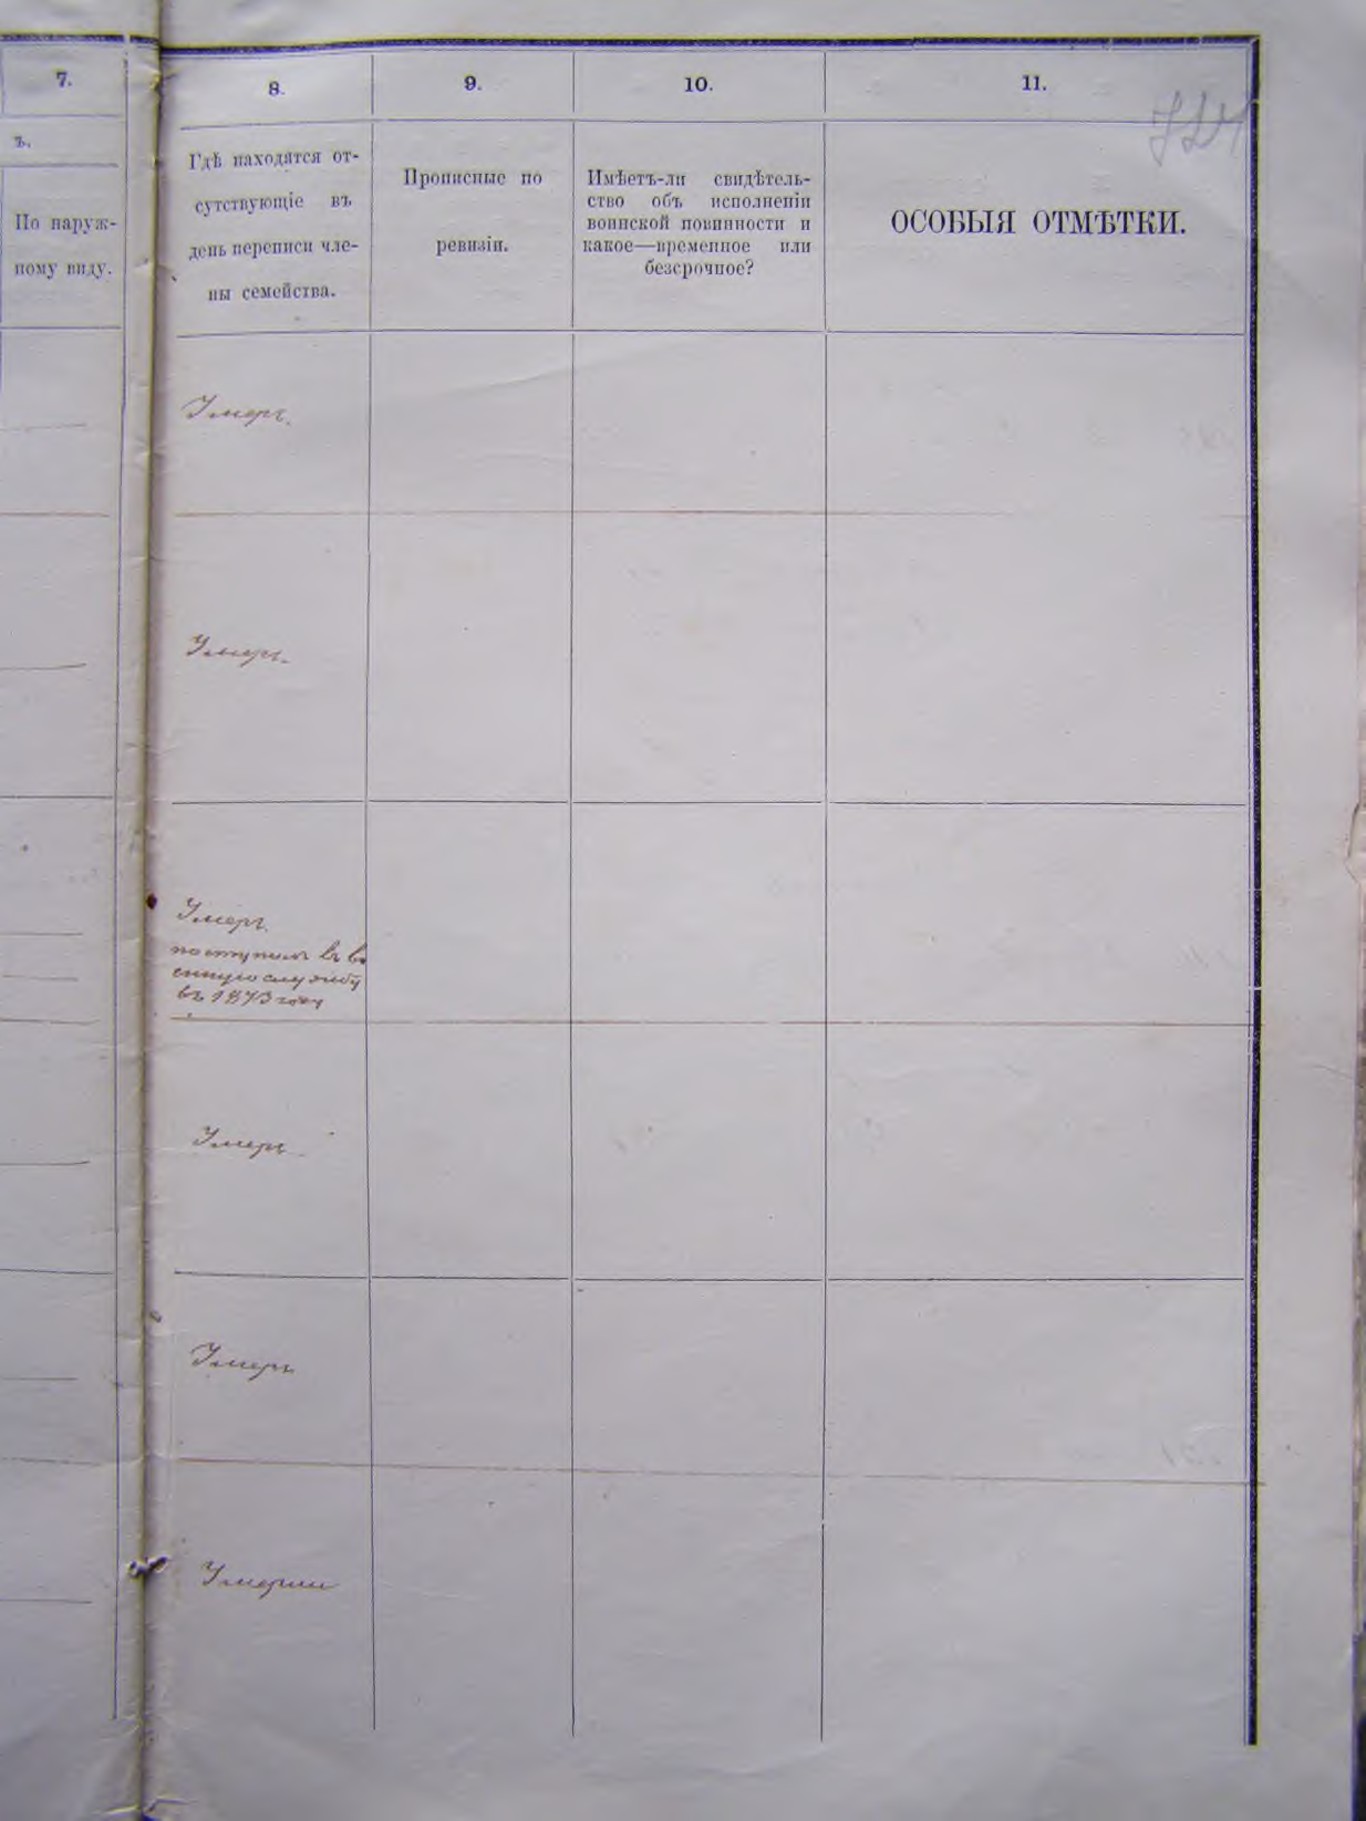 7.
8.
9.
10.
11.
ъ.
По наруж-
ному виду.
Гдѣ находятся от-
сутствующіе въ
день переписи чле-
ны семейства.
Прописные по
ревизіи.
Имѣетъ-ли свидѣтель-
ство объ исполненіи
воинской повинности и
какое—временное или
безсрочное?
ОСОБЫЯ ОТМѢТКИ.
Умеръ.
Умеръ.
Умеръ.
поступилъ въ во
енную службу
въ 1873 году
Умеръ
Умеръ
Умерли